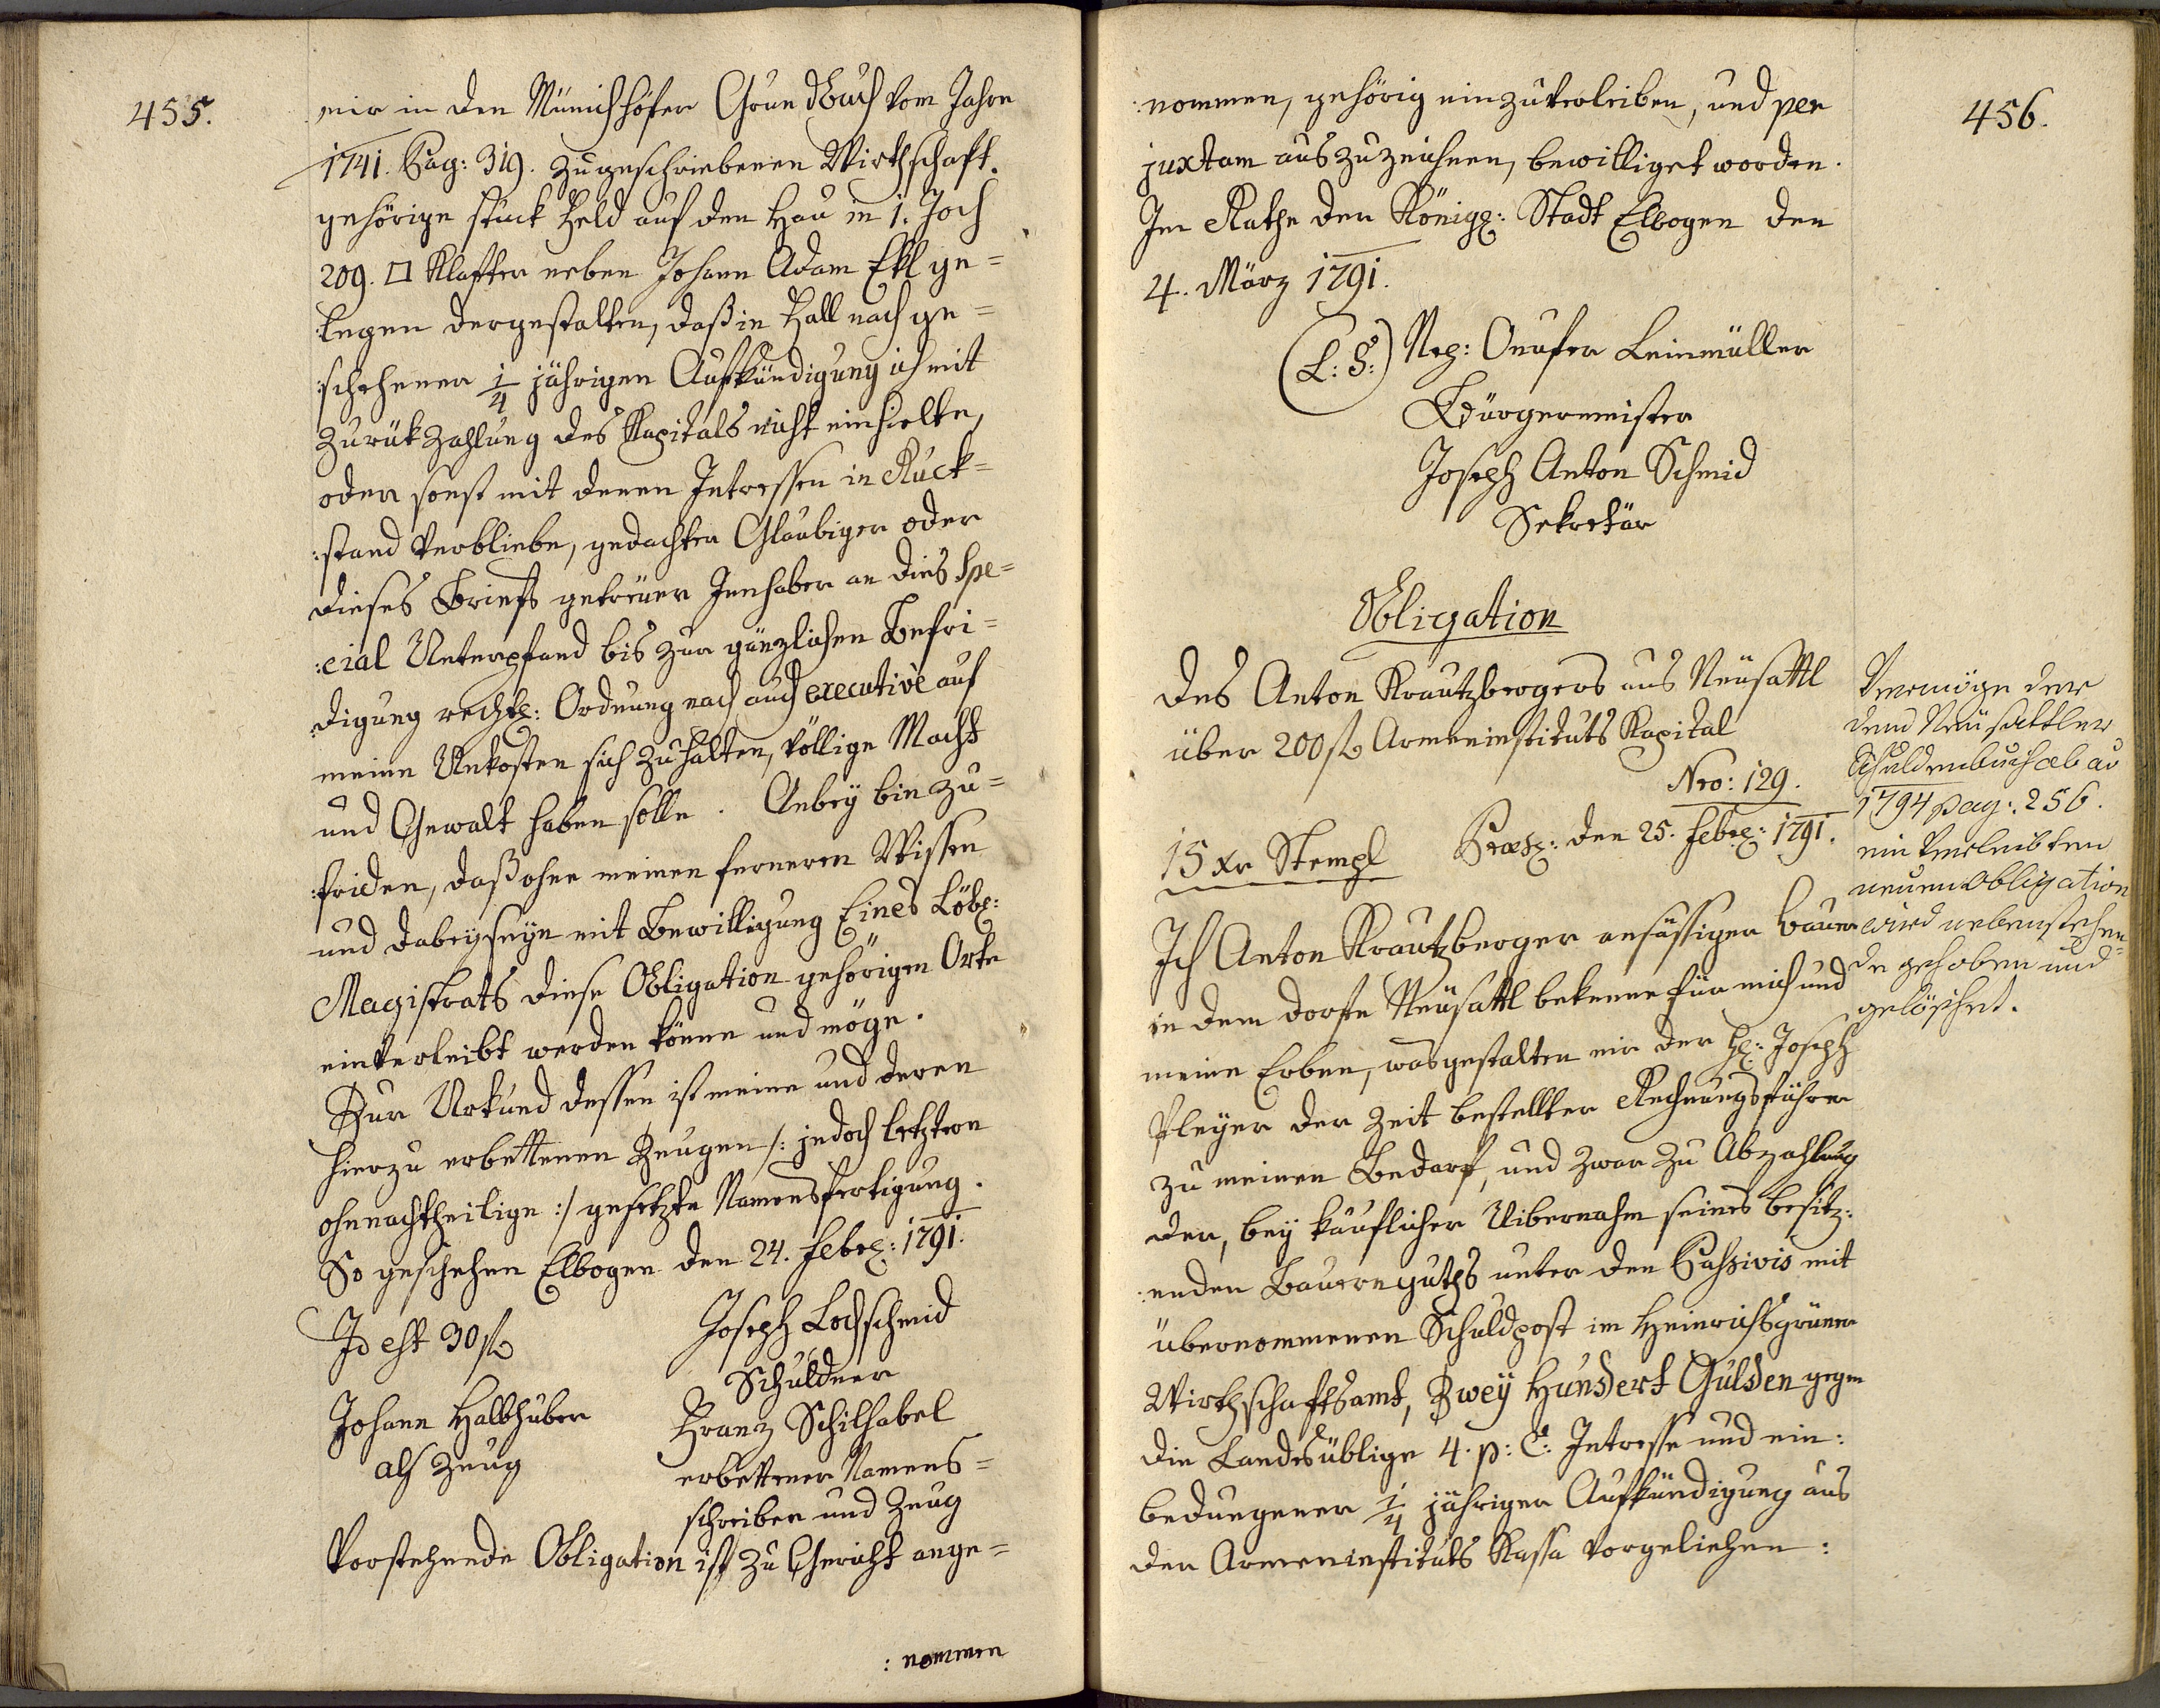 455.
mir in den Münichhöfer Grundbuch vom Jahre
1741. Pag: 319. zugeschriebenen Wirthschaft.
gehörige stück Feld auf den Hau in 1. Joch
209. □ Klafter neben Johann Adam Ekl ge=
:legen dergestalten, daß in Fall nach ge=
:schehener 1/4 jährigen Aufkündigung ich mit
zurükzahlung des Kapitals nicht einhielte,
oder sonst mit denen Intressen in Ruck=
:stand verbliebe, gedachter Glaubiger oder
dieses Briefs getreuer Innhaber an dies Spe=
:cial Unterpfand bis zur gänzlichen Befri=
:digung rechtl: Ordnung nach auch executivè auf
meine Unkosten sich zuhalten, völlige Macht
und Gewalt haben solle. Anbey bin zu=
:friden, daß ohne meinen ferneren Wissen
und dabeyseyn mit Bewilligung Eines Löbl:
Magistrats diese Obligation gehörigen Orte
einverleibt werden könne und möge.
Zur Urkund dessen ist meine und deren
hierzu erbettenen Zeugen /: jedoch letztern
ohnnachtheilige :/ gesetzte Namensfertigung.
So geschehen Elbogen den 24. Febr: 1791.
Id est 30 fl Joseph Lochschmid
Schuldner
Johann Halbhuber Franz Schilhabel
als Zeug erbettener Namens=
schreiber und Zeug
Vorstehende Obligation ist zu Gericht ange=
: nommen
456.
:nommen, gehörig einzuverleiben, und per
juxtam auszuzeichnen, bewilliget worden.
Im Rathe der Königl: Stadt Elbogen den
4. März 1791.
(L: S:) Onufer Leinmüller
Bürgermeister
Joseph Anton Schmid
Sekretär
Obligation
des Anton Krautzbergers aus Neusattl
über 200 fl Armeninstituts Kapital
Nro: 129.
15 xr Stempl Præs: den 25. Febr: 1791.
Ich Anton Krautzberger ansässiger Bauer
in dem dorfe Neusattl bekenne für mich und
meine Erben, wasgestalten mir der H: Joseph
Pleyer der Zeit bestellter Rechnungsführer
zu meinen Bedarf, und zwar zu Abzahlung
der, bey käuflicher Uibernahm seines besitz:
:enden Bauernguths unter den Passivis mit
übernommenen Schuldpost im Heinrichsgrüner
Wirthschaftsamt, Zwey Hundert Gulden gegen
die Landesüblige 4. p: C: Intresse und ein:
bedungener 1/4 jähriger Aufkündigung aus
der Armeninstituts Kassa vorgeliehen:
Vermöge der
dem Neusattler
Schuldenbuch ab ao
1794 pag: 256.
ein verleibten
neuen Obligation
wird nebenstehen=
de gehoben und
gelöschet.